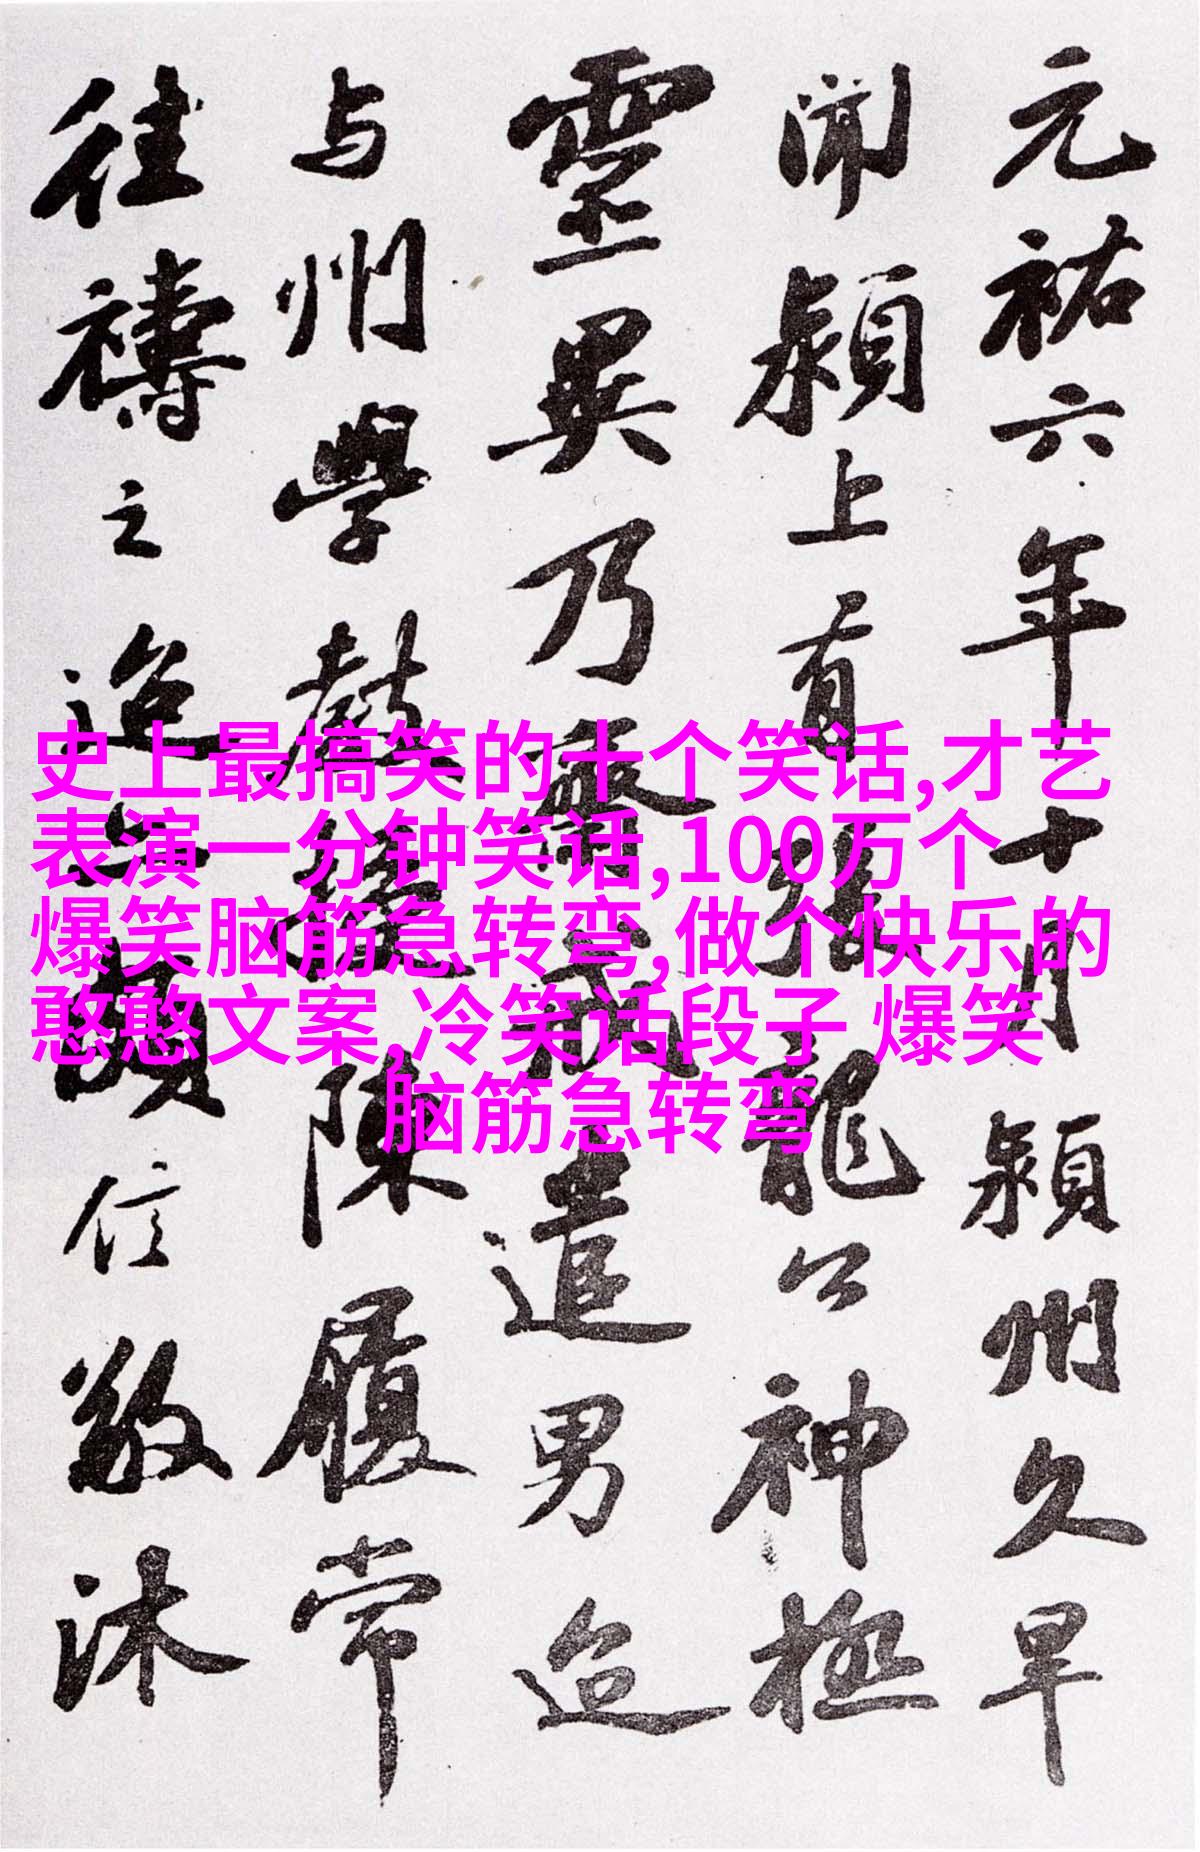 元祐六年十月潁州久旱
聞潁上有張龍公神極
靈異乃齋戒遣男迨
与州學教授陳履常
往禱之迨亦頗信敬沐
史上最搞笑的十个笑话,才艺
表演一分钟笑话,100万个
爆笑脑筋急转弯,做个快乐的
憨憨文案,冷笑话段子 爆笑
脑筋急转弯